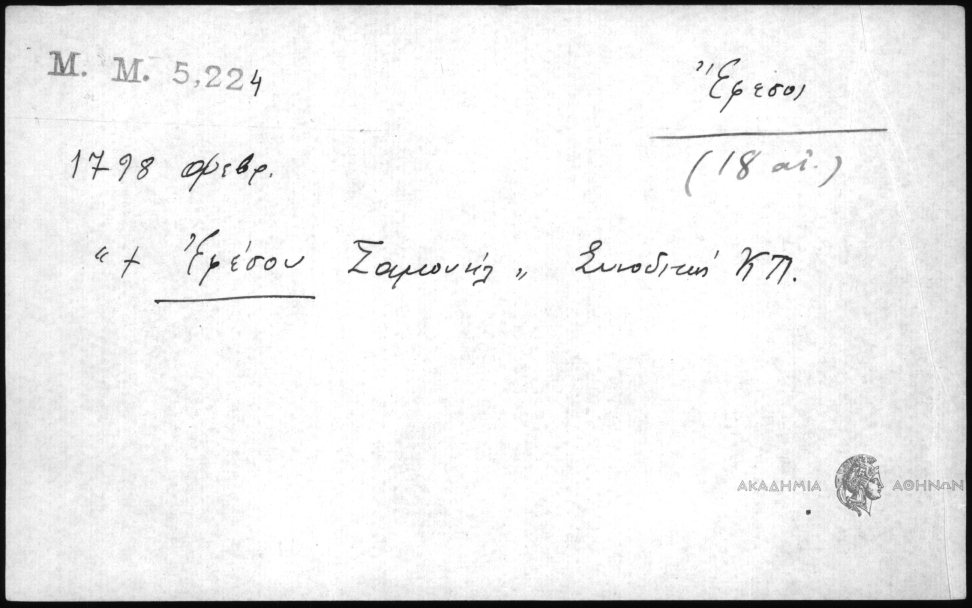 M. M. 5,224
Ἔφεσος
(18 αἰ.)
1798 Φεβρ.
“ + Ἐφέσου Σαμουήλ „ Συνοδική ΚΠ.
ΑΚΑΔΗΜΙΑ ΑΘΗΝΩΝ